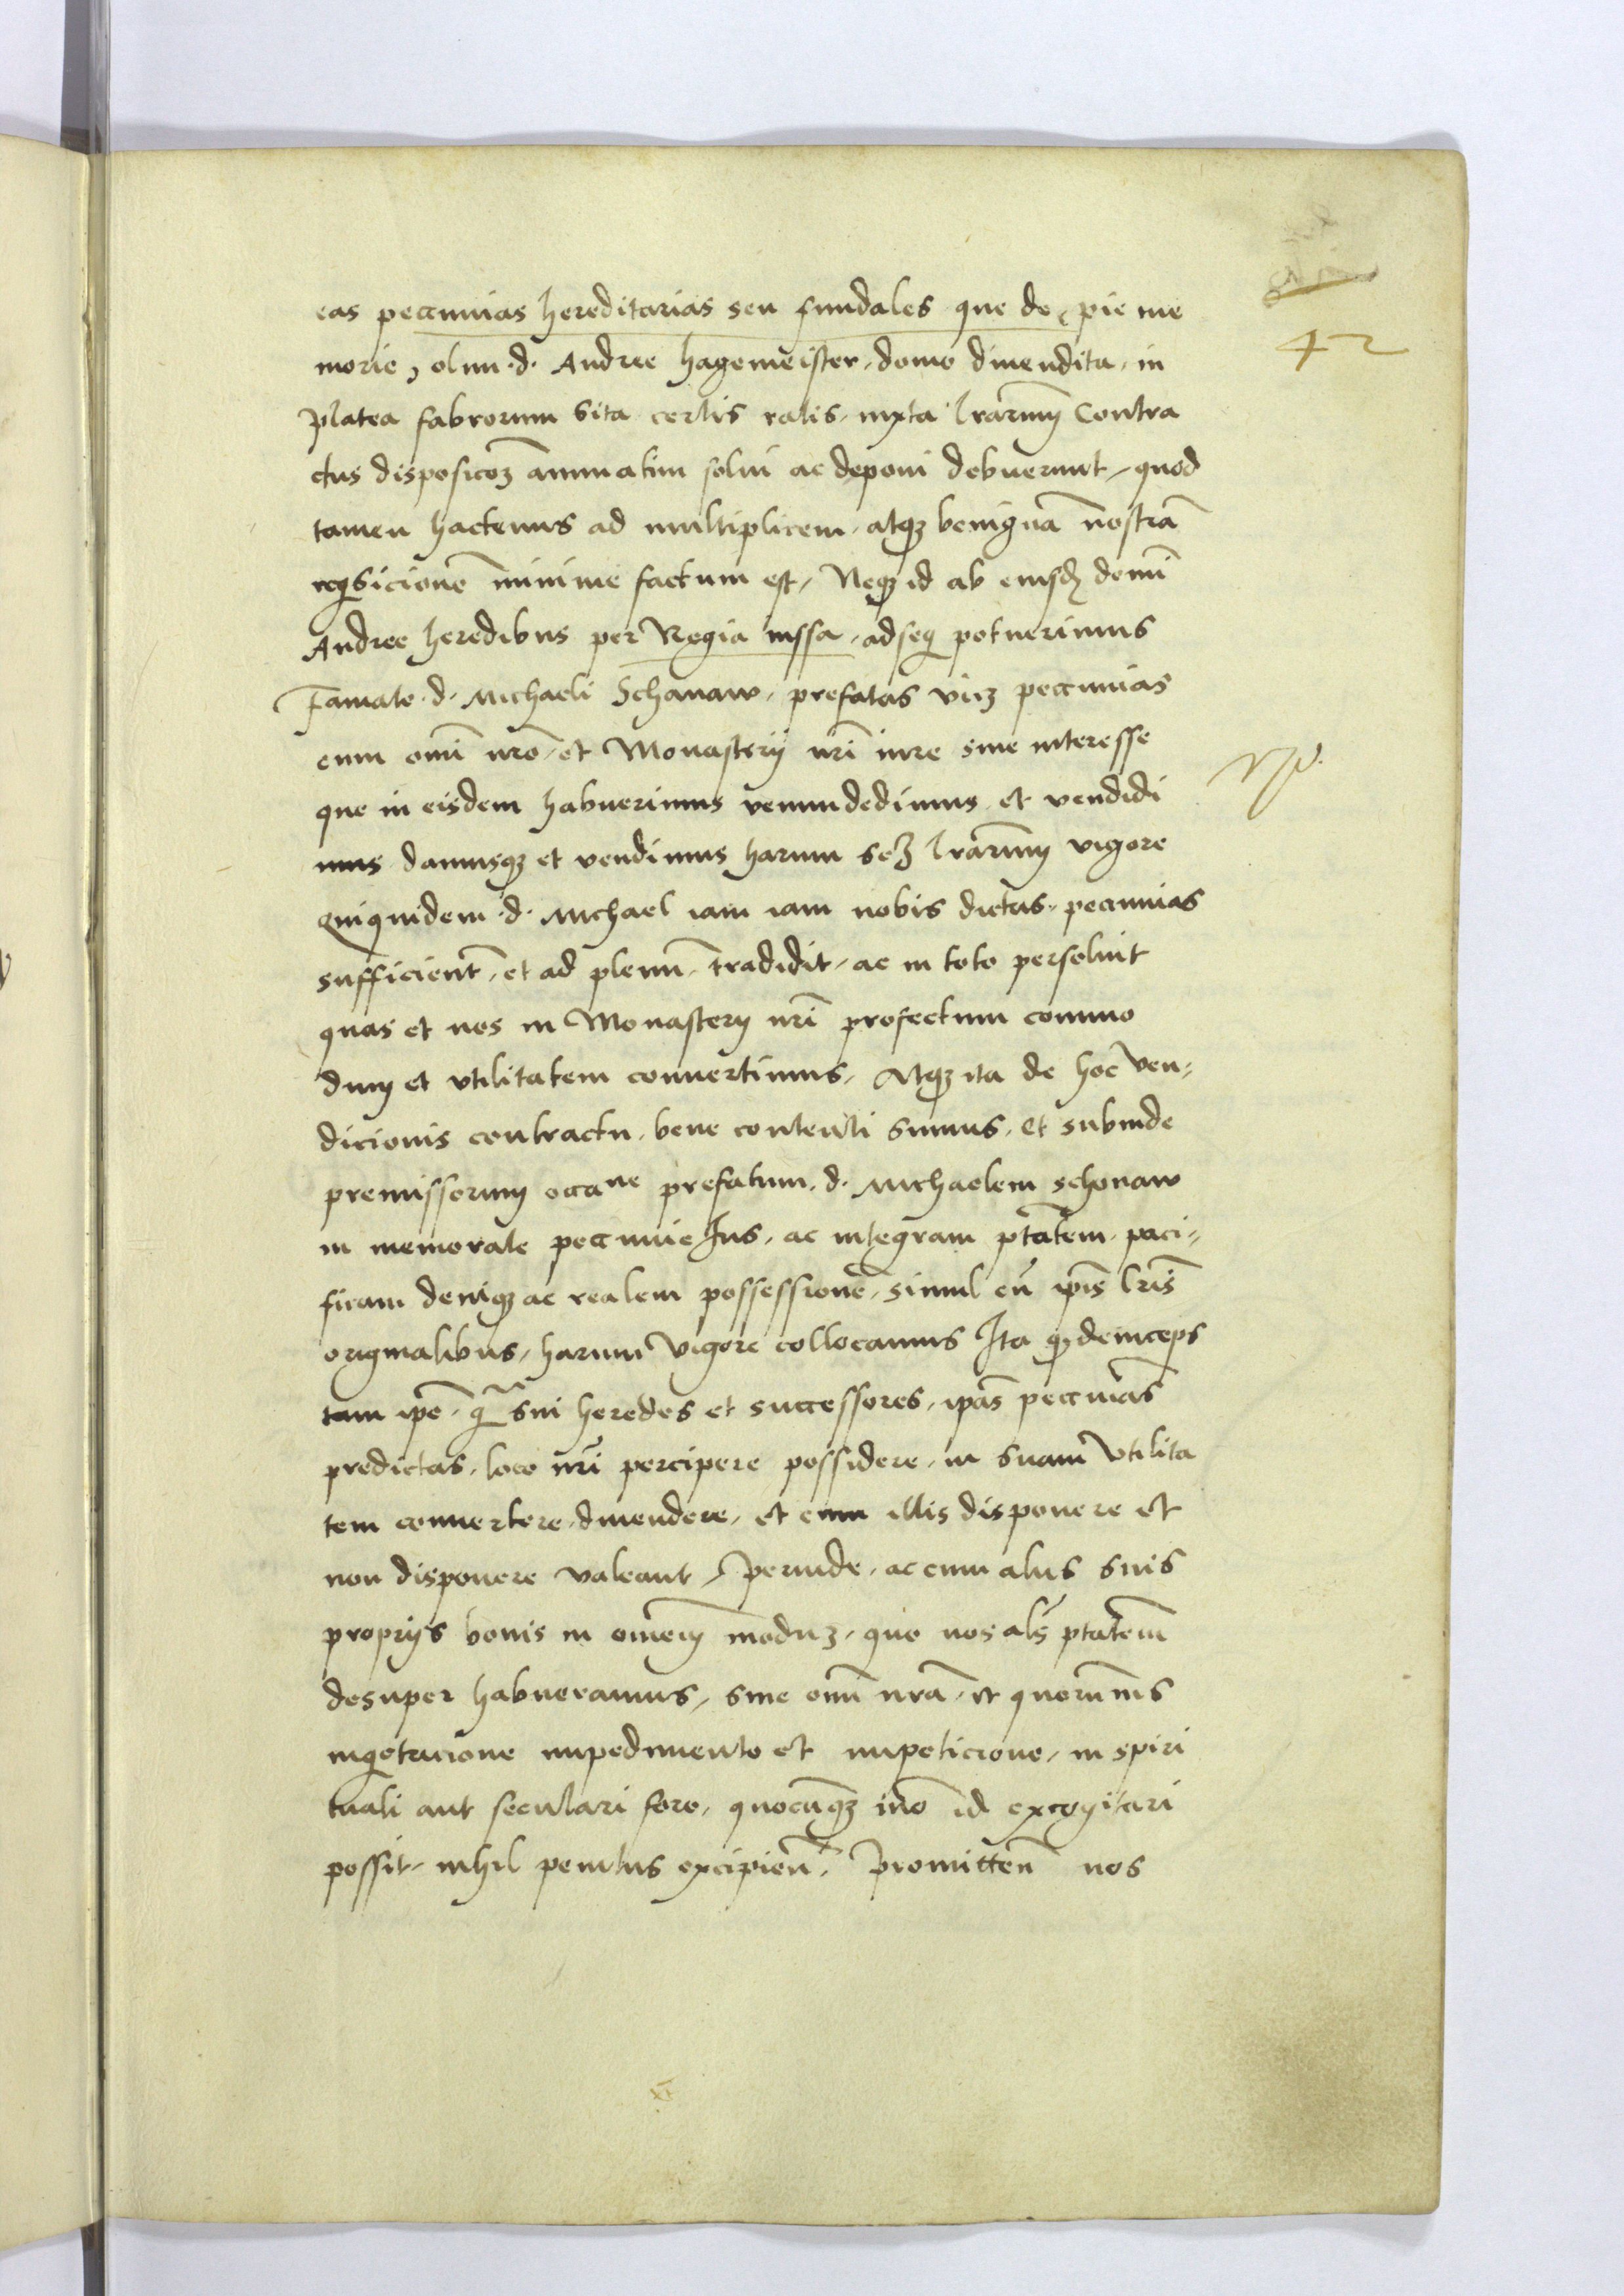 42
eas peccunias hereditarias seu fundales que de, pie me
morie, olim ·d· Andree hagemeister, domo diuendita, in
platea fabrorum sita certis ratis, iuxta lrarum̄ Contra
ctus disposicoꝫ̄ annuatim solui ac deponi debuerunt, quod
tamen hactenus ad multiplicem, atqꝫ benignā nostrā
reqͥsicionē minime factum est, Neqꝫ id ab eiusdꝫ domī
Andree heredibus per Regia iussa, adseqͥ potuerimus
Famato ·d· Michaeli Schonaw, prefatas vicꝫ peccunias
cum omī nr̄o, et Monasterij nr̄i iure siue interesse
que in eisdem habuerimus venundedimus, et vendidi
mus damusqꝫ et vendimus harum seꝫ lrarum̄ vigore
Quiquidem ·d· Michael iam iam nobis dictas, peccunias
sufficient̄, et ad plenū, tradidit, ac in toto persoluit
quas et nos in Monasterij nr̄i profectum commo
dum et vtilitatem conuertimus, Atqꝫ ita de hoc ven,
dicionis contractu, bene contenti sumus, et subinde
premissorum occaⁿᵉ prefatum, d. Michaelem schonaw
in memorate peccunie Ius, ac integram ptātem, paci,
ficam deniqꝫ ac realem possessionē, simul cū ip̄is lr̄is
originalibus, harum vigore collocamus Ita qꝫ deinceps
tam ip̄e, qͣ̄ sui heredes et successores, ip̄as peccunīas
predictas, loco nr̄i percipere possidere, in suam vtilita
tem conuertere, diuendere, et cum illis disponere et
non disponere valeant, Perinde, ac cum alijs suis
proprijs bonis in omnem̄ moduꝫ, quo nos al̄s ptātem
desuper habueramus, sine omī nr̄a, et quorumī̄s
inqͥetacione impedimento et impeticione, in spiri
tuali aut seculari foro, quocūqꝫ mō id excogitari
possit, nihil penitus excipien̄. Promitten̄ nos